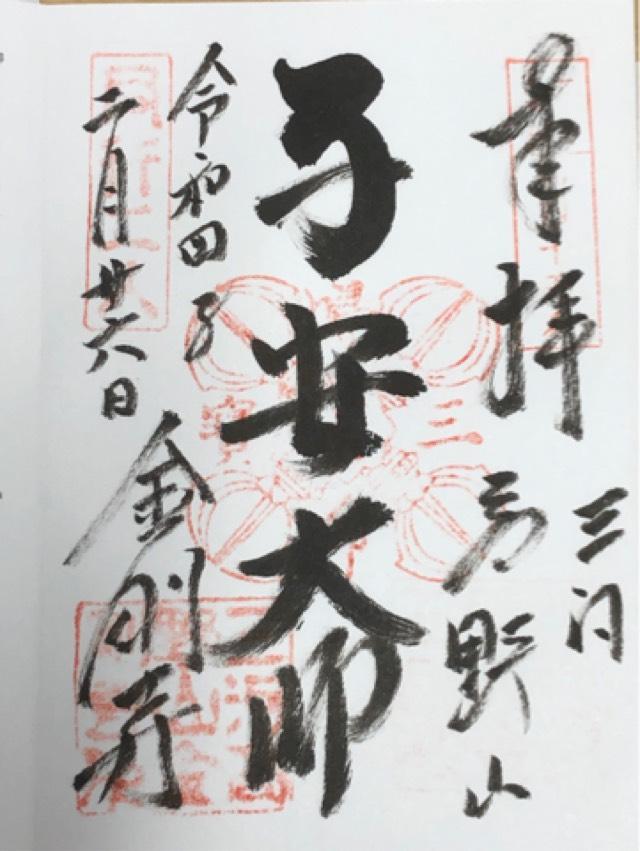 奉拝
三河
高野山
子安大師
令和四年
二月廿六日
金剛寺